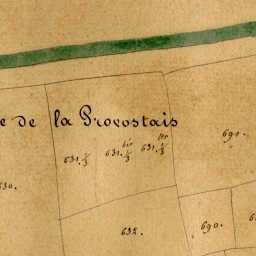 e de la Provostais
631.⅓ 631.bis⅓ 631.ter⅓
691.
630.
632.
690.